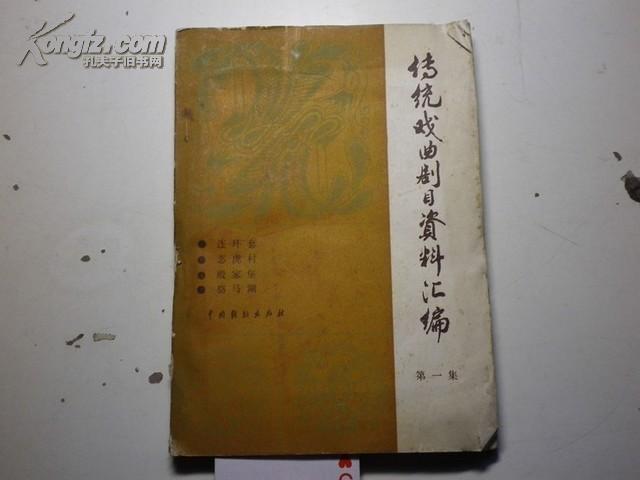 Kongfz.com
孔夫子旧书网
传统戏曲剧目資料汇编
第一集
连环套
恶虎村
殷家堡
骆马湖
中国戏剧出版社